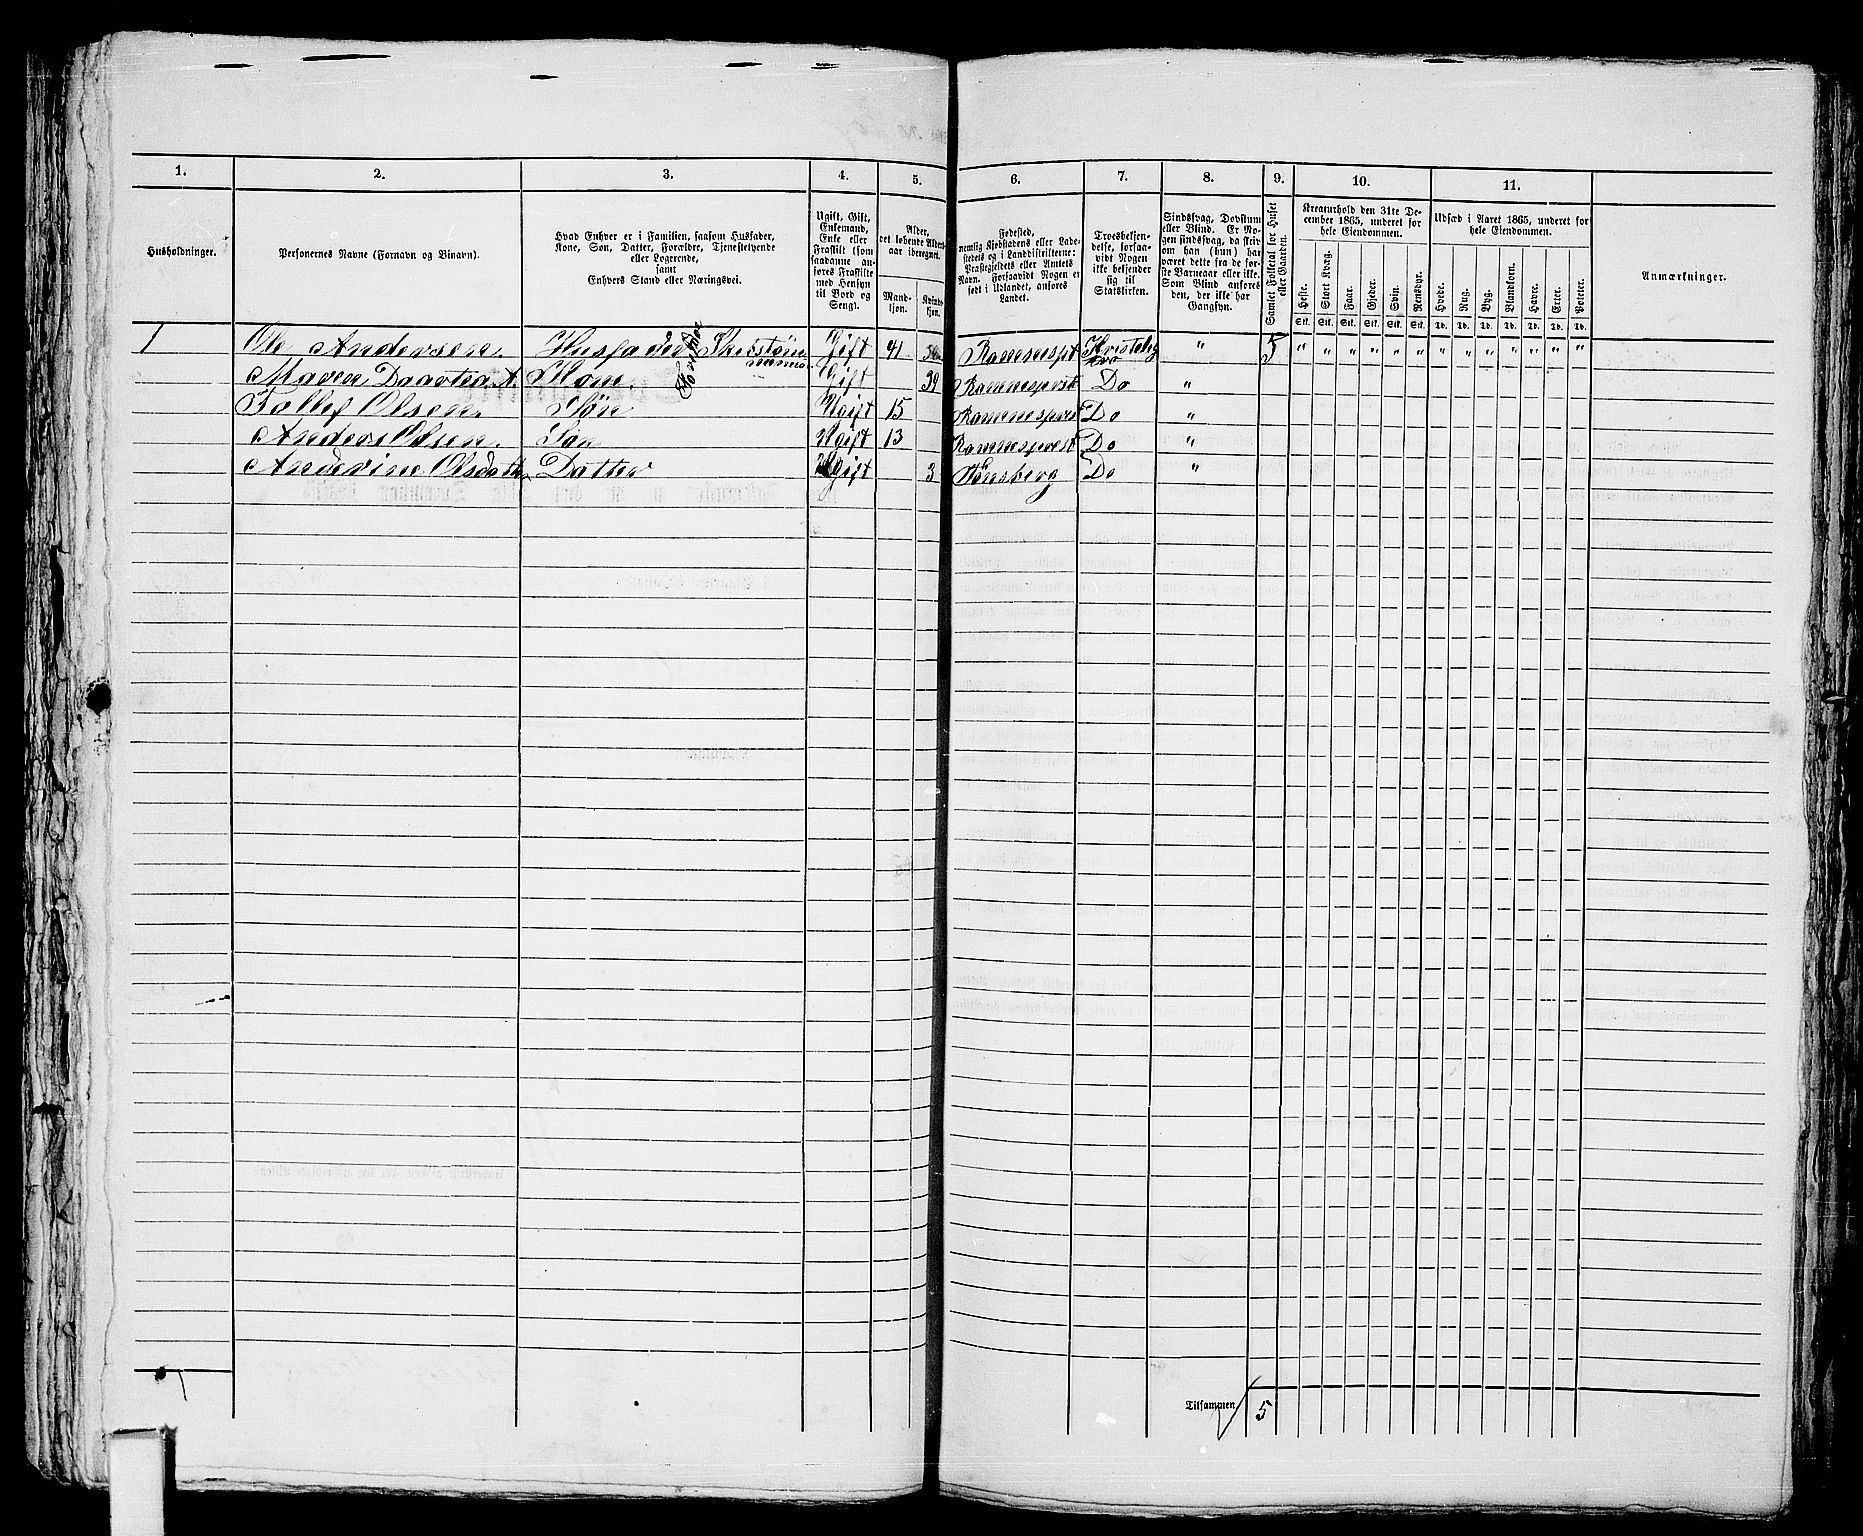 1. 2. 3. 4. 5. 6. 7. 8. 9. 10. 11.
Husholdninger.
Personernes Navne (Fornavn og Binavn).
Hvad Enhver er i Familien, saasom Husfader,
Kone, Søn, Datter, Forældre, Tjenestetyende
eller Logerende,
samt
Enhvers Stand eller Næringsvei.
Ugift, Gift,
Enkemand,
Enke eller
Fraskilt (som
saadanne an-
føres Fraskilte
med Hensyn
til Bord og
Seng).
Alder,
det løbende Alders-
aar iberegnet.
Mand-
kjøn.
Kvind-
kjøn.
Fødested,
nemlig Kjøbstadens eller Lade-
stedets og i Landdistrikterne:
Præstegjeldets eller Amtets
Navn. Forsaavidt Nogen er
født i Udlandet, anføres
Landet.
Troesbekjen-
delse, forsaa-
vidt Nogen
ikke bekjender
sig til
Statskirken.
Sindssvag, Døvstum
eller Blind. Er No-
gen sindssvag, da skriv
om han (hun) har
været dette fra de før-
ste Barneaar eller ikke.
Som Blind anføres
den, der ikke har
Gangsyn.
Samlet Folketal for Huset
eller Gaarden.
Kreaturhold den 31te De-
cember 1865, underet for
hele Eiendommen.
Heste. Stort Kvæg. Faar. Gjeder. Svin. Rensdyr.
Stk. Stk. Stk. Stk. Stk. Stk.
Udsæd i Aaret 1865, underet for
hele Eiendommen.
Hvede. Rug. Byg. Blandkorn. Havre. Erter. Poteter.
Td. Td. Td. Td. Td. Td. Td.
Anmærkninger.
1 Ole Andersen Husfader Gift 41 Ramnespst 5 " " " " " " " " " " " " " "
Maren Kone Gift 39 Ramnespst Do "
Tollef Olsen Søn Ugift 15 Ramnespst Do "
Anders Olsen Søn Ugift 13 Ramnespst Do "
Anderine Olsdatter Datter Ugift 3 Tønsberg Do "
Tilsammen 5